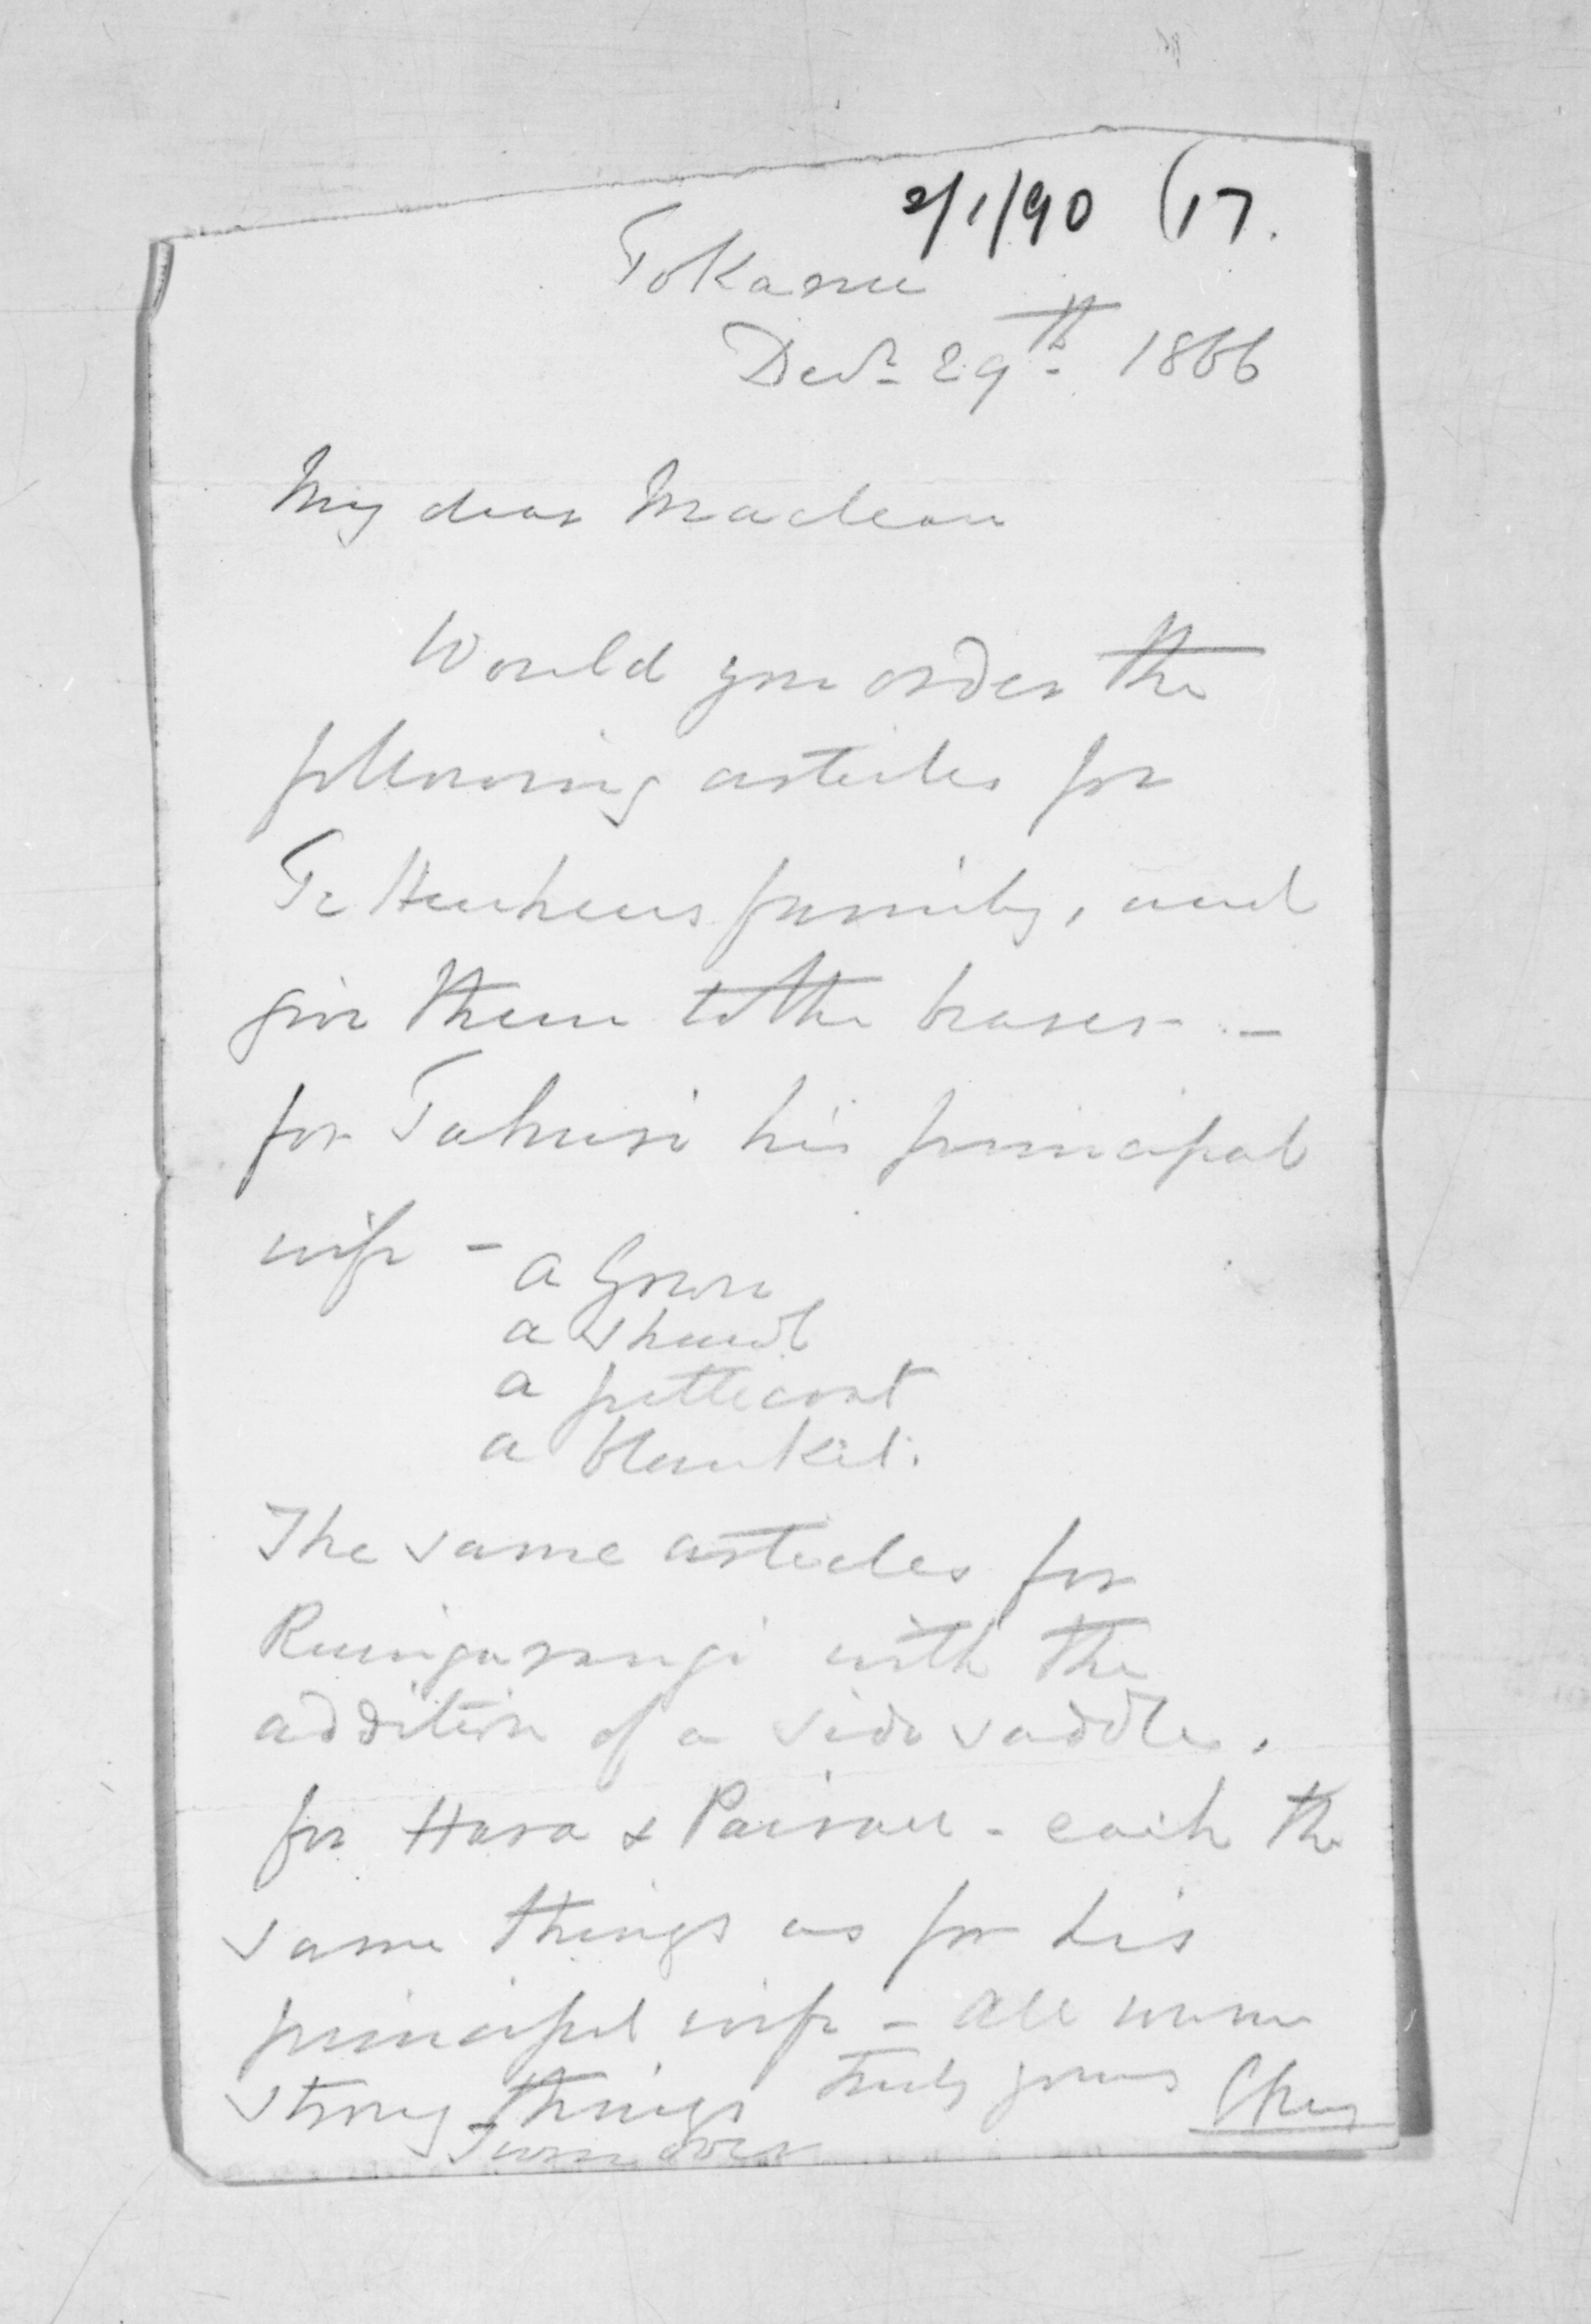 2/1/90 (17.
Tokanu
Decr. 29th. 1866
My dear Maclean
Would you order the
following articles for
Te Heuheus family, and
give them to the bearer -
for Tahuri his principal
wife -
a Gown
a shawl
a petticoat
a blanket.
The same articles for
Ruingarangi with the
addition of a side saddle.
for Hara & Pairau - each the
same things as for his
principal wife - All warm
strong things Truly yours
Turn over